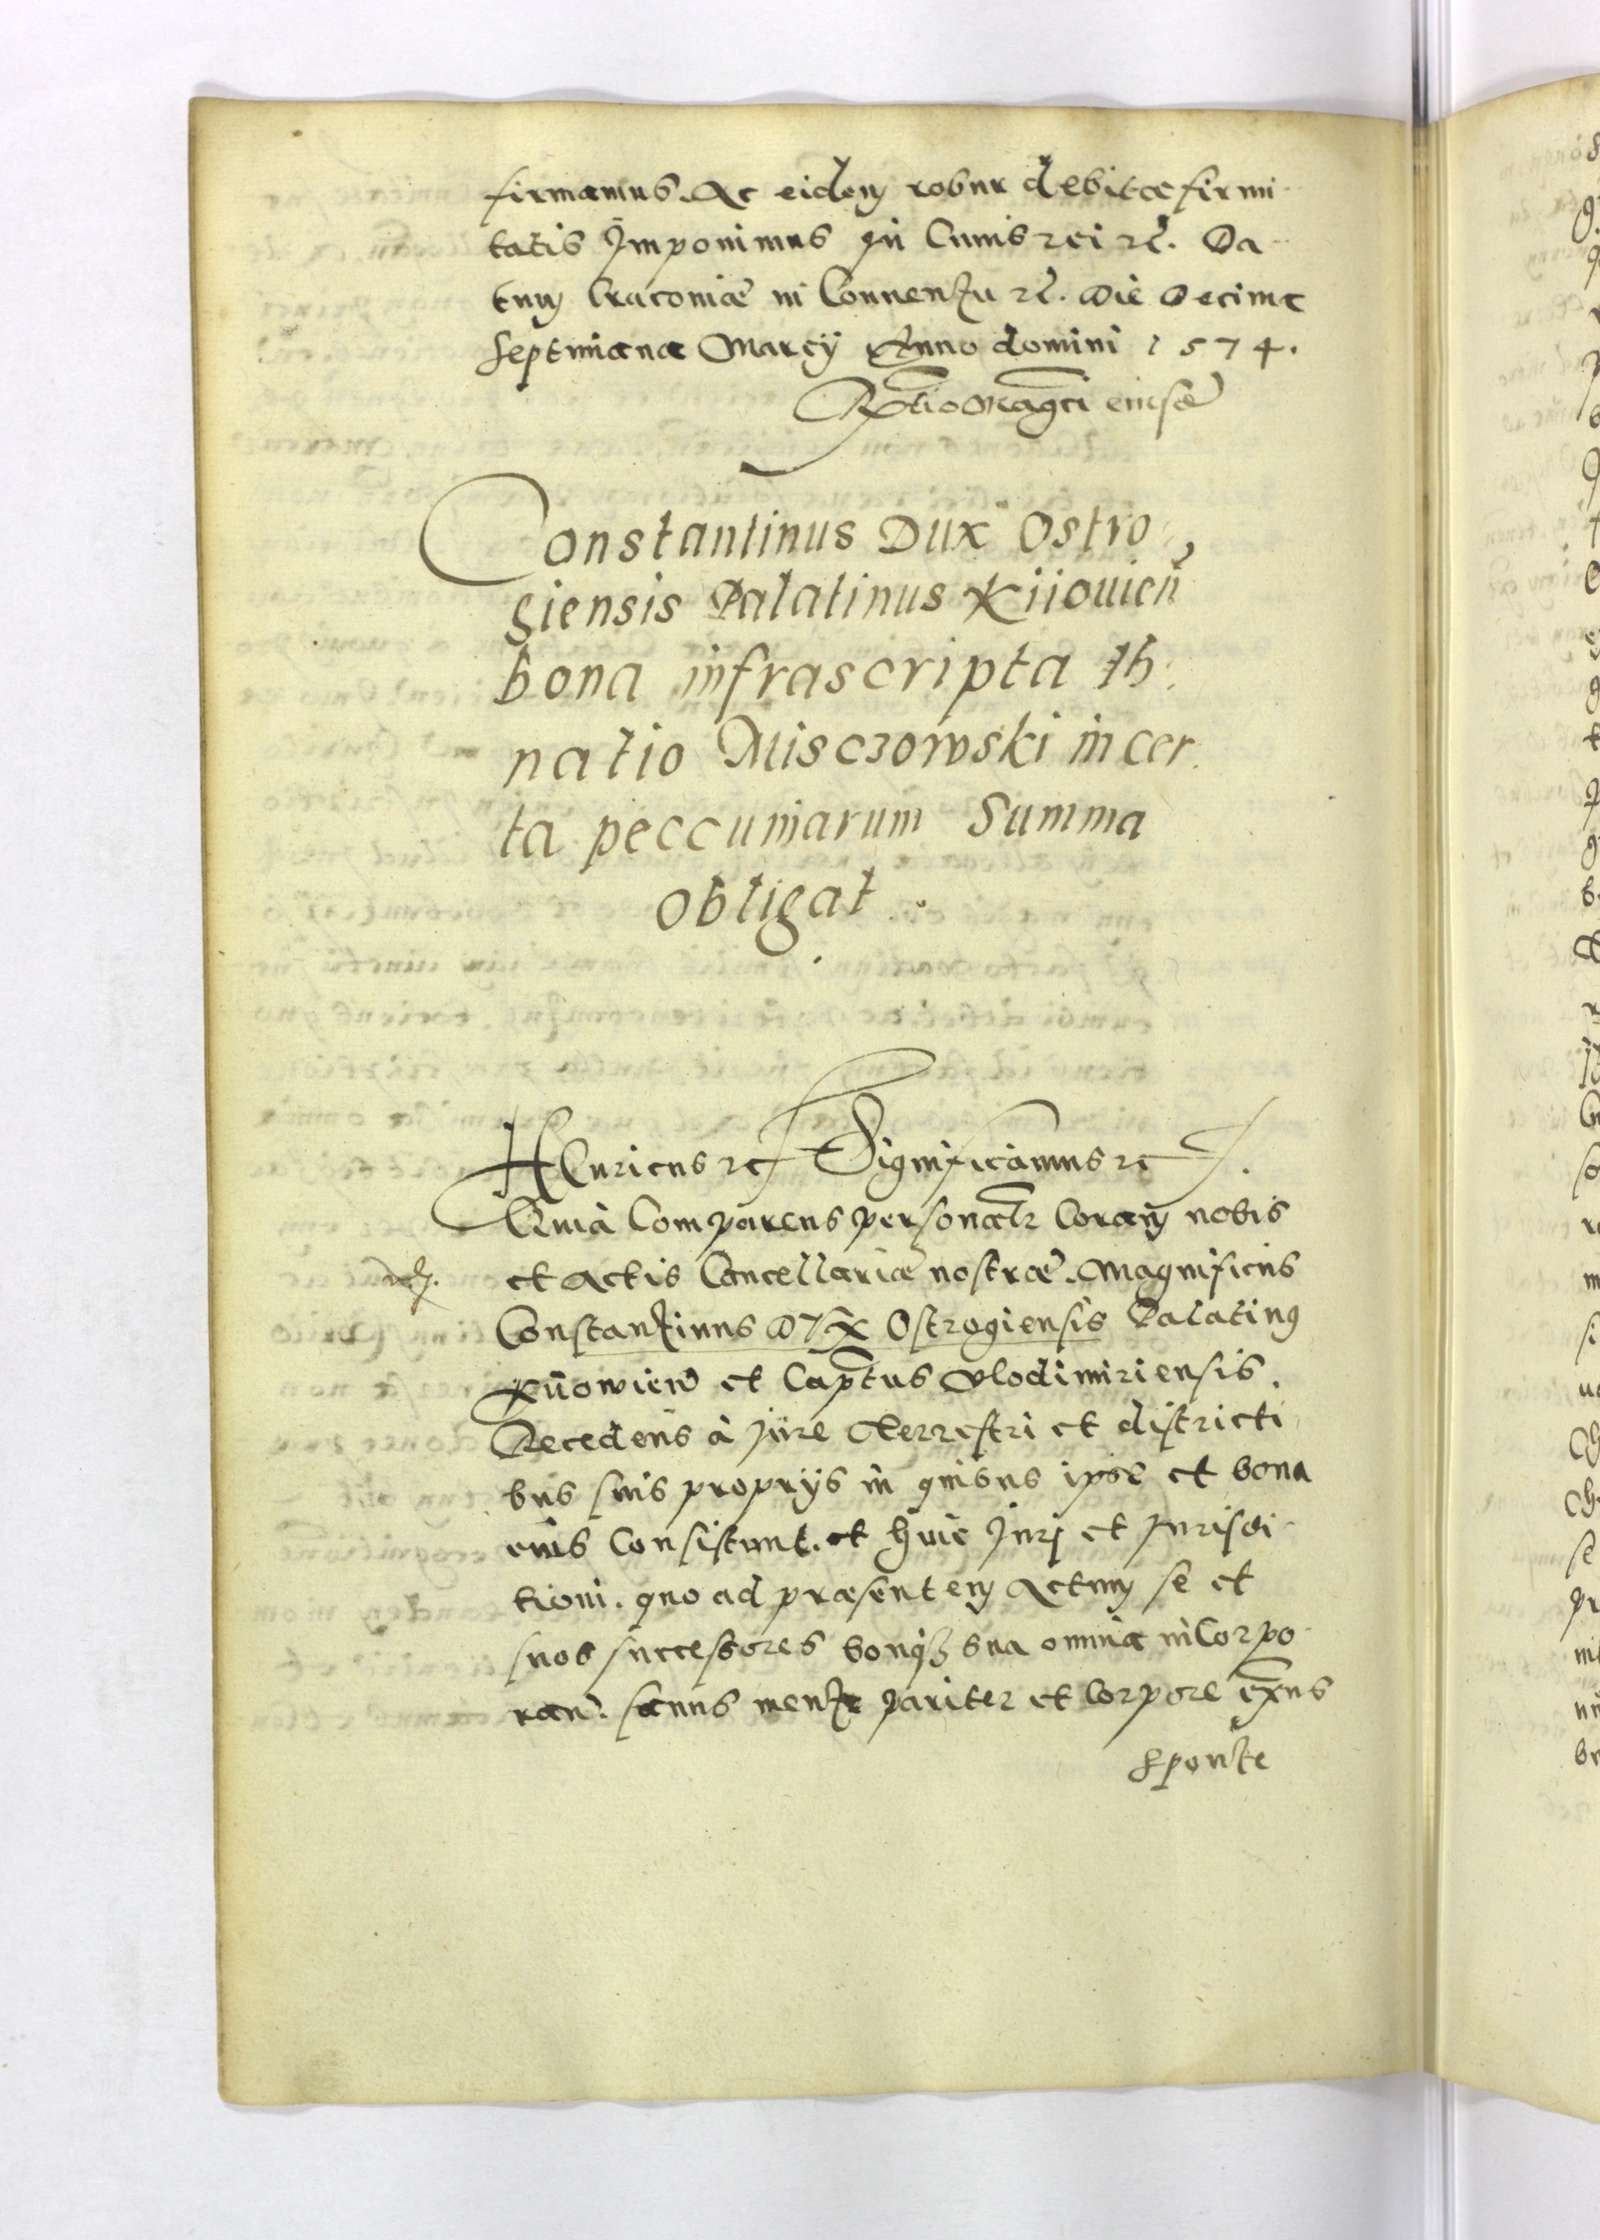 firmamus. Ac eidem robur debitae firmi
tatis Imponimus In Cuius rei etc. Da
tum Cracoviae in Conventu etc. Die Decima
Septimana Marcÿ Anno domini 1574.
Rtio Magci eiusd
Constantinus Dux Ostro
giensis Palatinus Kiiouieñ
bona infrascripta Ih
natio Misczowski in cer
ta peccuniarum Summa
obligat.
HEnricus etc Significamus etc.
Quia Comparens personalr Coram nobis
et Actis Cancellariae nostrae. Magnificus
Constantinus DVX Ostrogiensis Palatinus
Kiiowien et Captus Vlodimiriensis.
Recedens à Jure Terrestri et districti
bus suis proprÿs in quibus ipse et bona
eius Consistunt. et huic Juri et Jurisdi
tioni. quo ad praesentem Actum se et
suos successores bonaqz sua omnia inCorpo
ran. sanus mente pariter et Corpore exns
sponte